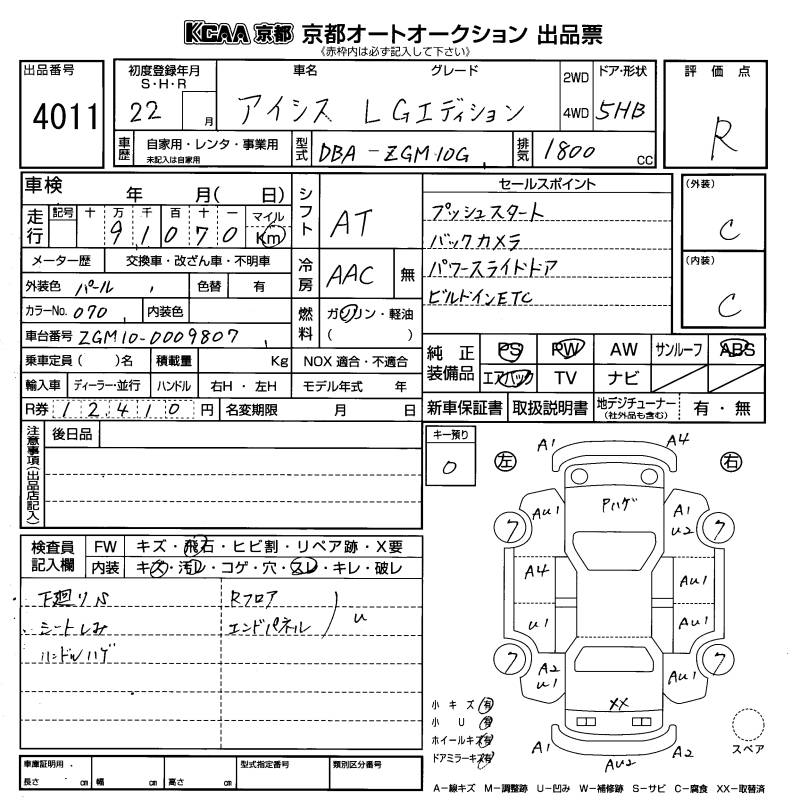 KCAA 京都 京都オートオークション 出品票
《赤枠内は必ず記入して下さい》
出品番号
4011
初度登録年月
S・H・R
22 月
車名 グレード
アイシス LGエディション
2WD
4WD
ドア・形状
5HB
評価点
R
車歴
自家用・レンタ・事業用
未記入は自家用
型式
DBA-ZGM10G
排気
1800 cc
車検 年 月( 日)
走行
記号 十 万 千 百 十 一 マイル
9 1 0 7 0 Km
シフト
AT
セールスポイント
プッシュスタート
バックカメラ
パワースライドドア
ビルドインETC
(外装)
C
(内装)
C
メーター歴 交換車・改ざん車・不明車
外装色 パール 色替 有
冷房
AAC 無
カラーNo. 070 内装色
燃料
ガソリン・軽油
( )
車台番号 ZGM10-0009807
乗車定員( )名 積載量 Kg NOX 適合・不適合
輸入車 ディーラー・並行 ハンドル 右H・左H モデル年式 年
R券 12410円 名変期限 月 日
純正装備品
PS PW AW サンルーフ ABS
エアバック TV ナビ
新車保証書 取扱説明書 地デジチューナー 有・無
(社外品も含む)
注意事項(出品店記入)
後日品
キー預り
0
左 右
A1 A4
Pハゲ
AU1 A1
U2
ワ ワ
A4 AU1
U1 AU1
ワ ワ
A2
U1 AU1
XX
A1 AU2 A2
検査員記入欄
FW キズ・飛石・ヒビ割・リペア跡・X要
内装 キズ・汚レ・コゲ・穴・スレ・キレ・破レ
下廻りS Rフロア
シートしみ エンドパネル U
ハンドルハゲ
小キズ 有
小U 有
ホイールキズ 有
ドアミラーキズ 有
スペア
車庫証明用
長さ cm 幅 cm 高さ cm
型式指定番号 類別区分番号
A-線キズ M-調整跡 U-凹み W-補修跡 S-サビ C-腐食 XX-取替済